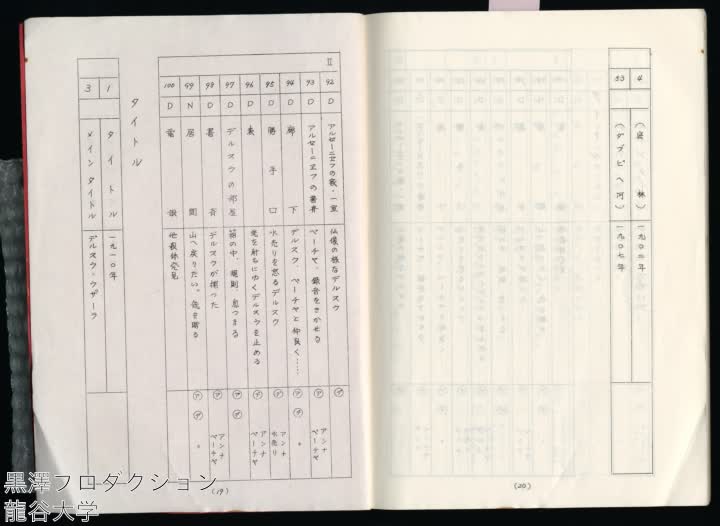 II
92 D アルセーニエフの家・一室 仏像の様なデルスウ デ
93 D アルセーニエフの書斎 ペーチャ、録音をきかせる ア デ アンナ ペーチャ
94 D 廊下 デルスウ、ペーチャと仲良く……
95 D 勝手口 水売りを怒るデルスウ アンナ 水売り
96 D 表 薪を割りにゆくデルスウを止める アンナ ペーチャ
97 D デルスウの部屋 箱の中、規則、息つまる
98 D 書斎 デルスウが捕った アンナ ペーチャ
99 N 居間 山へ戻りたい。銃を贈る 〃
100 D 電報 他殺体発見
タイトル
1 タイトル 一九一〇年
3 メインタイトル デルスウ・ウザーラ
(19)
4 一九〇二年
53 一九〇七年
(20)
黒澤プロダクション
龍谷大学